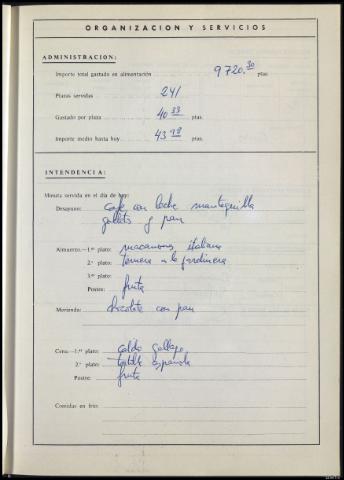 ORGANIZACION Y SERVICIOS
ADMINISTRACION:
Importe total gastado en alimentación 9720.30 ptas.
Plazas servidas 241
Gastado por plaza 40 33 ptas.
Importe medio hasta hoy 43 98 ptas.
INTENDENCIA:
Minuta servida en el día de hoy:
Desayuno: café con leche mantequilla
galletas y pan
Almuerzo.—1.er plato: macarrones italiana
2.º plato: ternera a la jardinera
3.er plato:
Postre: fruta
Merienda: chocolate con pan
Cena.—1.er plato: caldo gallego
2.º plato: tortilla española
Postre: fruta
Comidas en frío: